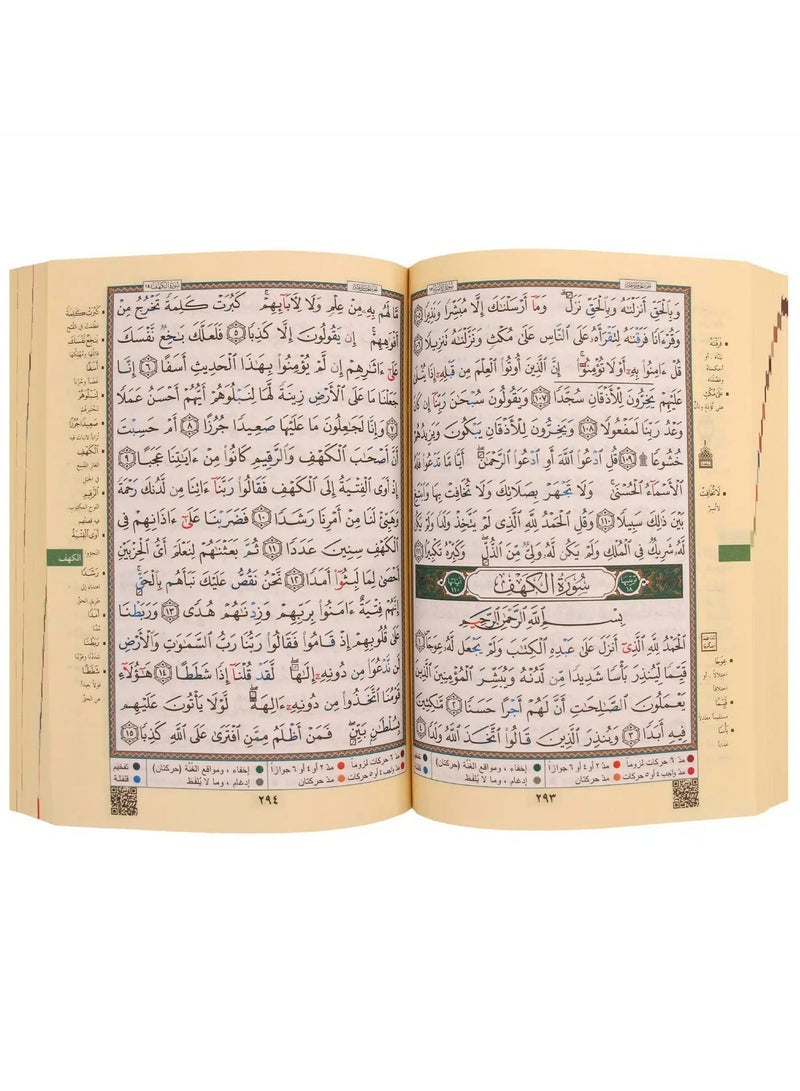 وَبِٱلۡحَقِّ أَنزَلۡنَٰهُ وَبِٱلۡحَقِّ نَزَلَۗ وَمَآ أَرۡسَلۡنَٰكَ إِلَّا مُبَشِّرٗا وَنَذِيرٗا
وَقُرۡءَانٗا فَرَقۡنَٰهُ لِتَقۡرَأَهُۥ عَلَى ٱلنَّاسِ عَلَىٰ مُكۡثٖ وَنَزَّلۡنَٰهُ تَنزِيلٗا
قُلۡ ءَامِنُواْ بِهِۦٓ أَوۡ لَا تُؤۡمِنُوٓاْۚ إِنَّ ٱلَّذِينَ أُوتُواْ ٱلۡعِلۡمَ مِن قَبۡلِهِۦٓ إِذَا يُتۡلَىٰ
عَلَيۡهِمۡ يَخِرُّونَۤ لِلۡأَذۡقَانِۤ سُجَّدٗاۤ ١٠٧ وَيَقُولُونَ سُبۡحَٰنَ رَبِّنَآ إِن كَانَ
وَعۡدُ رَبِّنَا لَمَفۡعُولٗا ١٠٨ وَيَخِرُّونَ لِلۡأَذۡقَانِ يَبۡكُونَ وَيَزِيدُهُمۡ
خُشُوعٗا ۩ ١٠٩ قُلِ ٱدۡعُواْ ٱللَّهَ أَوِ ٱدۡعُواْ ٱلرَّحۡمَٰنَۖ أَيّٗا مَّا تَدۡعُواْ فَلَهُ
ٱلۡأَسۡمَآءُ ٱلۡحُسۡنَىٰۚ وَلَا تَجۡهَرۡ بِصَلَاتِكَ وَلَا تُخَافِتۡ بِهَا وَٱبۡتَغِ
بَيۡنَ ذَٰلِكَ سَبِيلٗا ١١٠ وَقُلِ ٱلۡحَمۡدُ لِلَّهِ ٱلَّذِي لَمۡ يَتَّخِذۡ وَلَدٗا وَلَمۡ يَكُن
لَّهُۥ شَرِيكٞ فِي ٱلۡمُلۡكِ وَلَمۡ يَكُن لَّهُۥ وَلِيّٞ مِّنَ ٱلذُّلِّۖ وَكَبِّرۡهُ تَكۡبِيرَۢا
سُورَةُ الكَهۡفِ
بِسۡمِ ٱللَّهِ ٱلرَّحۡمَٰنِ ٱلرَّحِيمِ
ٱلۡحَمۡدُ لِلَّهِ ٱلَّذِيٓ أَنزَلَ عَلَىٰ عَبۡدِهِ ٱلۡكِتَٰبَ وَلَمۡ يَجۡعَل لَّهُۥ عِوَجَاۜ
قَيِّمٗا لِّيُنذِرَ بَأۡسٗا شَدِيدٗا مِّن لَّدُنۡهُ وَيُبَشِّرَ ٱلۡمُؤۡمِنِينَ ٱلَّذِينَ
يَعۡمَلُونَ ٱلصَّٰلِحَٰتِ أَنَّ لَهُمۡ أَجۡرًا حَسَنٗا ٢ مَّٰكِثِينَ
فِيهِ أَبَدٗا ٣ وَيُنذِرَ ٱلَّذِينَ قَالُواْ ٱتَّخَذَ ٱللَّهُ وَلَدٗا
مدّ ٦ حركات لزوماً مدّ ٢ أو ٤ أو ٦ جوازاً إخفاء ، ومواقع الغُنّة (حركتان)
مدّ واجب ٤ أو ٥ حركات مدّ حركتان إدغام ، وما لا يُلفظ
٢٩٣
فَرَقۡنَٰهُ
عَلَىٰ مُكۡثٖ
لَا تُخَافِتۡ
عِوَجَا
قَيِّمٗا
بَأۡسٗا
عذاباً
مَّا لَهُم بِهِۦ مِنۡ عِلۡمٖ وَلَا لِأٓبَآئِهِمۡۚ كَبُرَتۡ كَلِمَةٗ تَخۡرُجُ مِنۡ
أَفۡوَٰهِهِمۡۚ إِن يَقُولُونَ إِلَّا كَذِبٗا ٥ فَلَعَلَّكَ بَٰخِعٞ نَّفۡسَكَ
عَلَىٰٓ ءَاثَٰرِهِمۡ إِن لَّمۡ يُؤۡمِنُواْ بِهَٰذَا ٱلۡحَدِيثِ أَسَفًا ٦ إِنَّا
جَعَلۡنَا مَا عَلَى ٱلۡأَرۡضِ زِينَةٗ لَّهَا لِنَبۡلُوَهُمۡ أَيُّهُمۡ أَحۡسَنُ عَمَلٗا
٧ وَإِنَّا لَجَٰعِلُونَ مَا عَلَيۡهَا صَعِيدٗا جُرُزًا ٨ أَمۡ حَسِبۡتَ
أَنَّ أَصۡحَٰبَ ٱلۡكَهۡفِ وَٱلرَّقِيمِ كَانُواْ مِنۡ ءَايَٰتِنَا عَجَبًا ٩
إِذۡ أَوَى ٱلۡفِتۡيَةُ إِلَى ٱلۡكَهۡفِ فَقَالُواْ رَبَّنَآ ءَاتِنَا مِن لَّدُنكَ رَحۡمَةٗ
وَهَيِّئۡ لَنَا مِنۡ أَمۡرِنَا رَشَدٗا ١٠ فَضَرَبۡنَا عَلَىٰٓ ءَاذَانِهِمۡ فِي
ٱلۡكَهۡفِ سِنِينَ عَدَدٗا ١١ ثُمَّ بَعَثۡنَٰهُمۡ لِنَعۡلَمَ أَيُّ ٱلۡحِزۡبَيۡنِ
أَحۡصَىٰ لِمَا لَبِثُوٓاْ أَمَدٗا ١٢ نَّحۡنُ نَقُصُّ عَلَيۡكَ نَبَأَهُم بِٱلۡحَقِّۚ
إِنَّهُمۡ فِتۡيَةٌ ءَامَنُواْ بِرَبِّهِمۡ وَزِدۡنَٰهُمۡ هُدٗى ١٣ وَرَبَطۡنَا
عَلَىٰ قُلُوبِهِمۡ إِذۡ قَامُواْ فَقَالُواْ رَبُّنَا رَبُّ ٱلسَّمَٰوَٰتِ وَٱلۡأَرۡضِ
لَن نَّدۡعُوَاْ مِن دُونِهِۦٓ إِلَٰهٗاۖ لَّقَدۡ قُلۡنَآ إِذٗا شَطَطًا ١٤ هَٰٓؤُلَآءِ
قَوۡمُنَا ٱتَّخَذُواْ مِن دُونِهِۦٓ ءَالِهَةٗۖ لَّوۡلَا يَأۡتُونَ عَلَيۡهِم
بِسُلۡطَٰنِۭ بَيِّنٖۖ فَمَنۡ أَظۡلَمُ مِمَّنِ ٱفۡتَرَىٰ عَلَى ٱللَّهِ كَذِبٗا ١٥
مدّ ٦ حركات لزوماً مدّ ٢ أو ٤ أو ٦ جوازاً إخفاء ، ومواقع الغُنّة (حركتان) تفخيم
مدّ واجب ٤ أو ٥ حركات مدّ حركتان إدغام ، وما لا يُلفظ قلقلة
٢٩٤
كَبُرَتۡ كَلِمَةٗ
بَٰخِعٞ نَّفۡسَكَ
لِنَبۡلُوَهُمۡ
صَعِيدٗا جُرُزًا
ٱلۡكَهۡفِ
ٱلرَّقِيمِ
أَوَى ٱلۡفِتۡيَةُ
الكهف
رَشَدٗا
رَبَطۡنَا
شَطَطًا